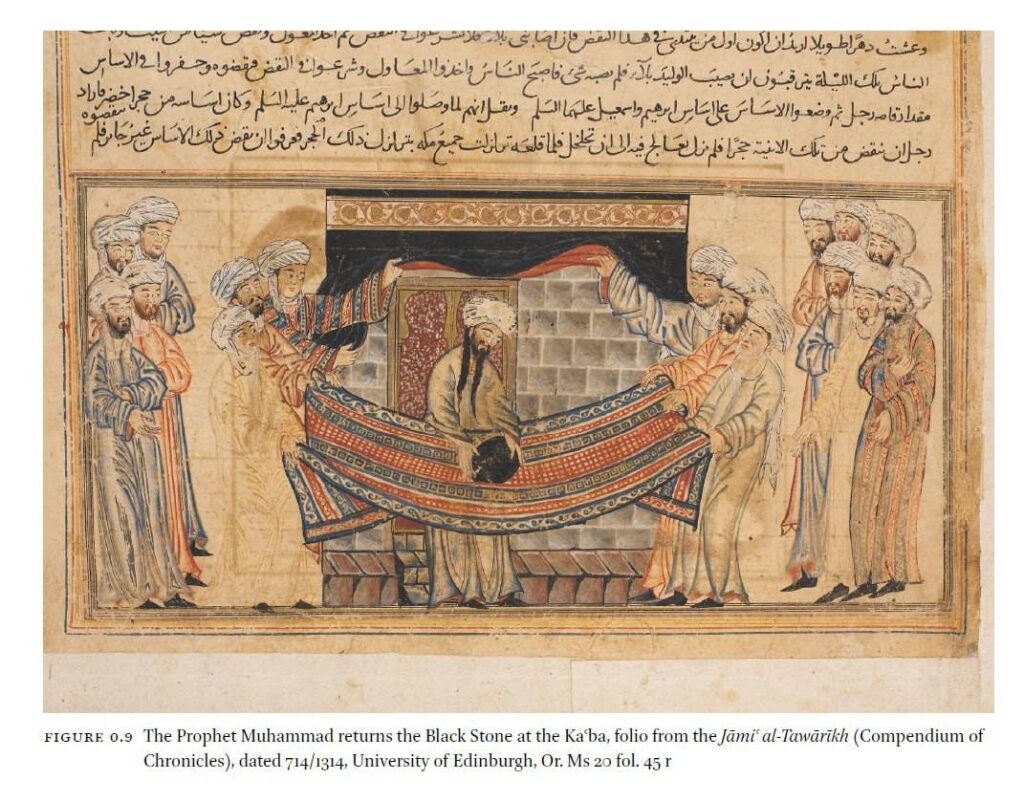 وعشت دهرا طويلا اريد ان اكون اول من يبتدئ في هذا النقض فان اصابني بلاء فلا تشرعوا في النقض ثم اخذ ونقض
الناس تلك الليلة يترقبون ان يصيب الوليد بلاء فلم يصبه شئ فاصبح الناس واخذوا المعاول وشرعوا في النقض فنقضوه وحفروا في الاساس
مقدار قامه رجل ثم وضعوا الاساس على اساس ابرهيم واسمعيل عليهما السلم ونقل انهم لما وصلوا الى اساس ابرهيم عليه السلم وكان اساسه من حجر اخضر فاراد
رجل ان ينقض من تلك الابنية حجرا فلم يزل يعالج فيه الى ان تخلخل فلما قلعه تزلزلت جميع مكه بتزلزل ذلك الحجر فعرفوا ان نقض ذلك الاساس غير جائز فلم ينقضوه
FIGURE 0.9 The Prophet Muhammad returns the Black Stone at the Kaʿba, folio from the Jāmiʿ al-Tawārīkh (Compendium of
Chronicles), dated 714/1314, University of Edinburgh, Or. Ms 20 fol. 45 r